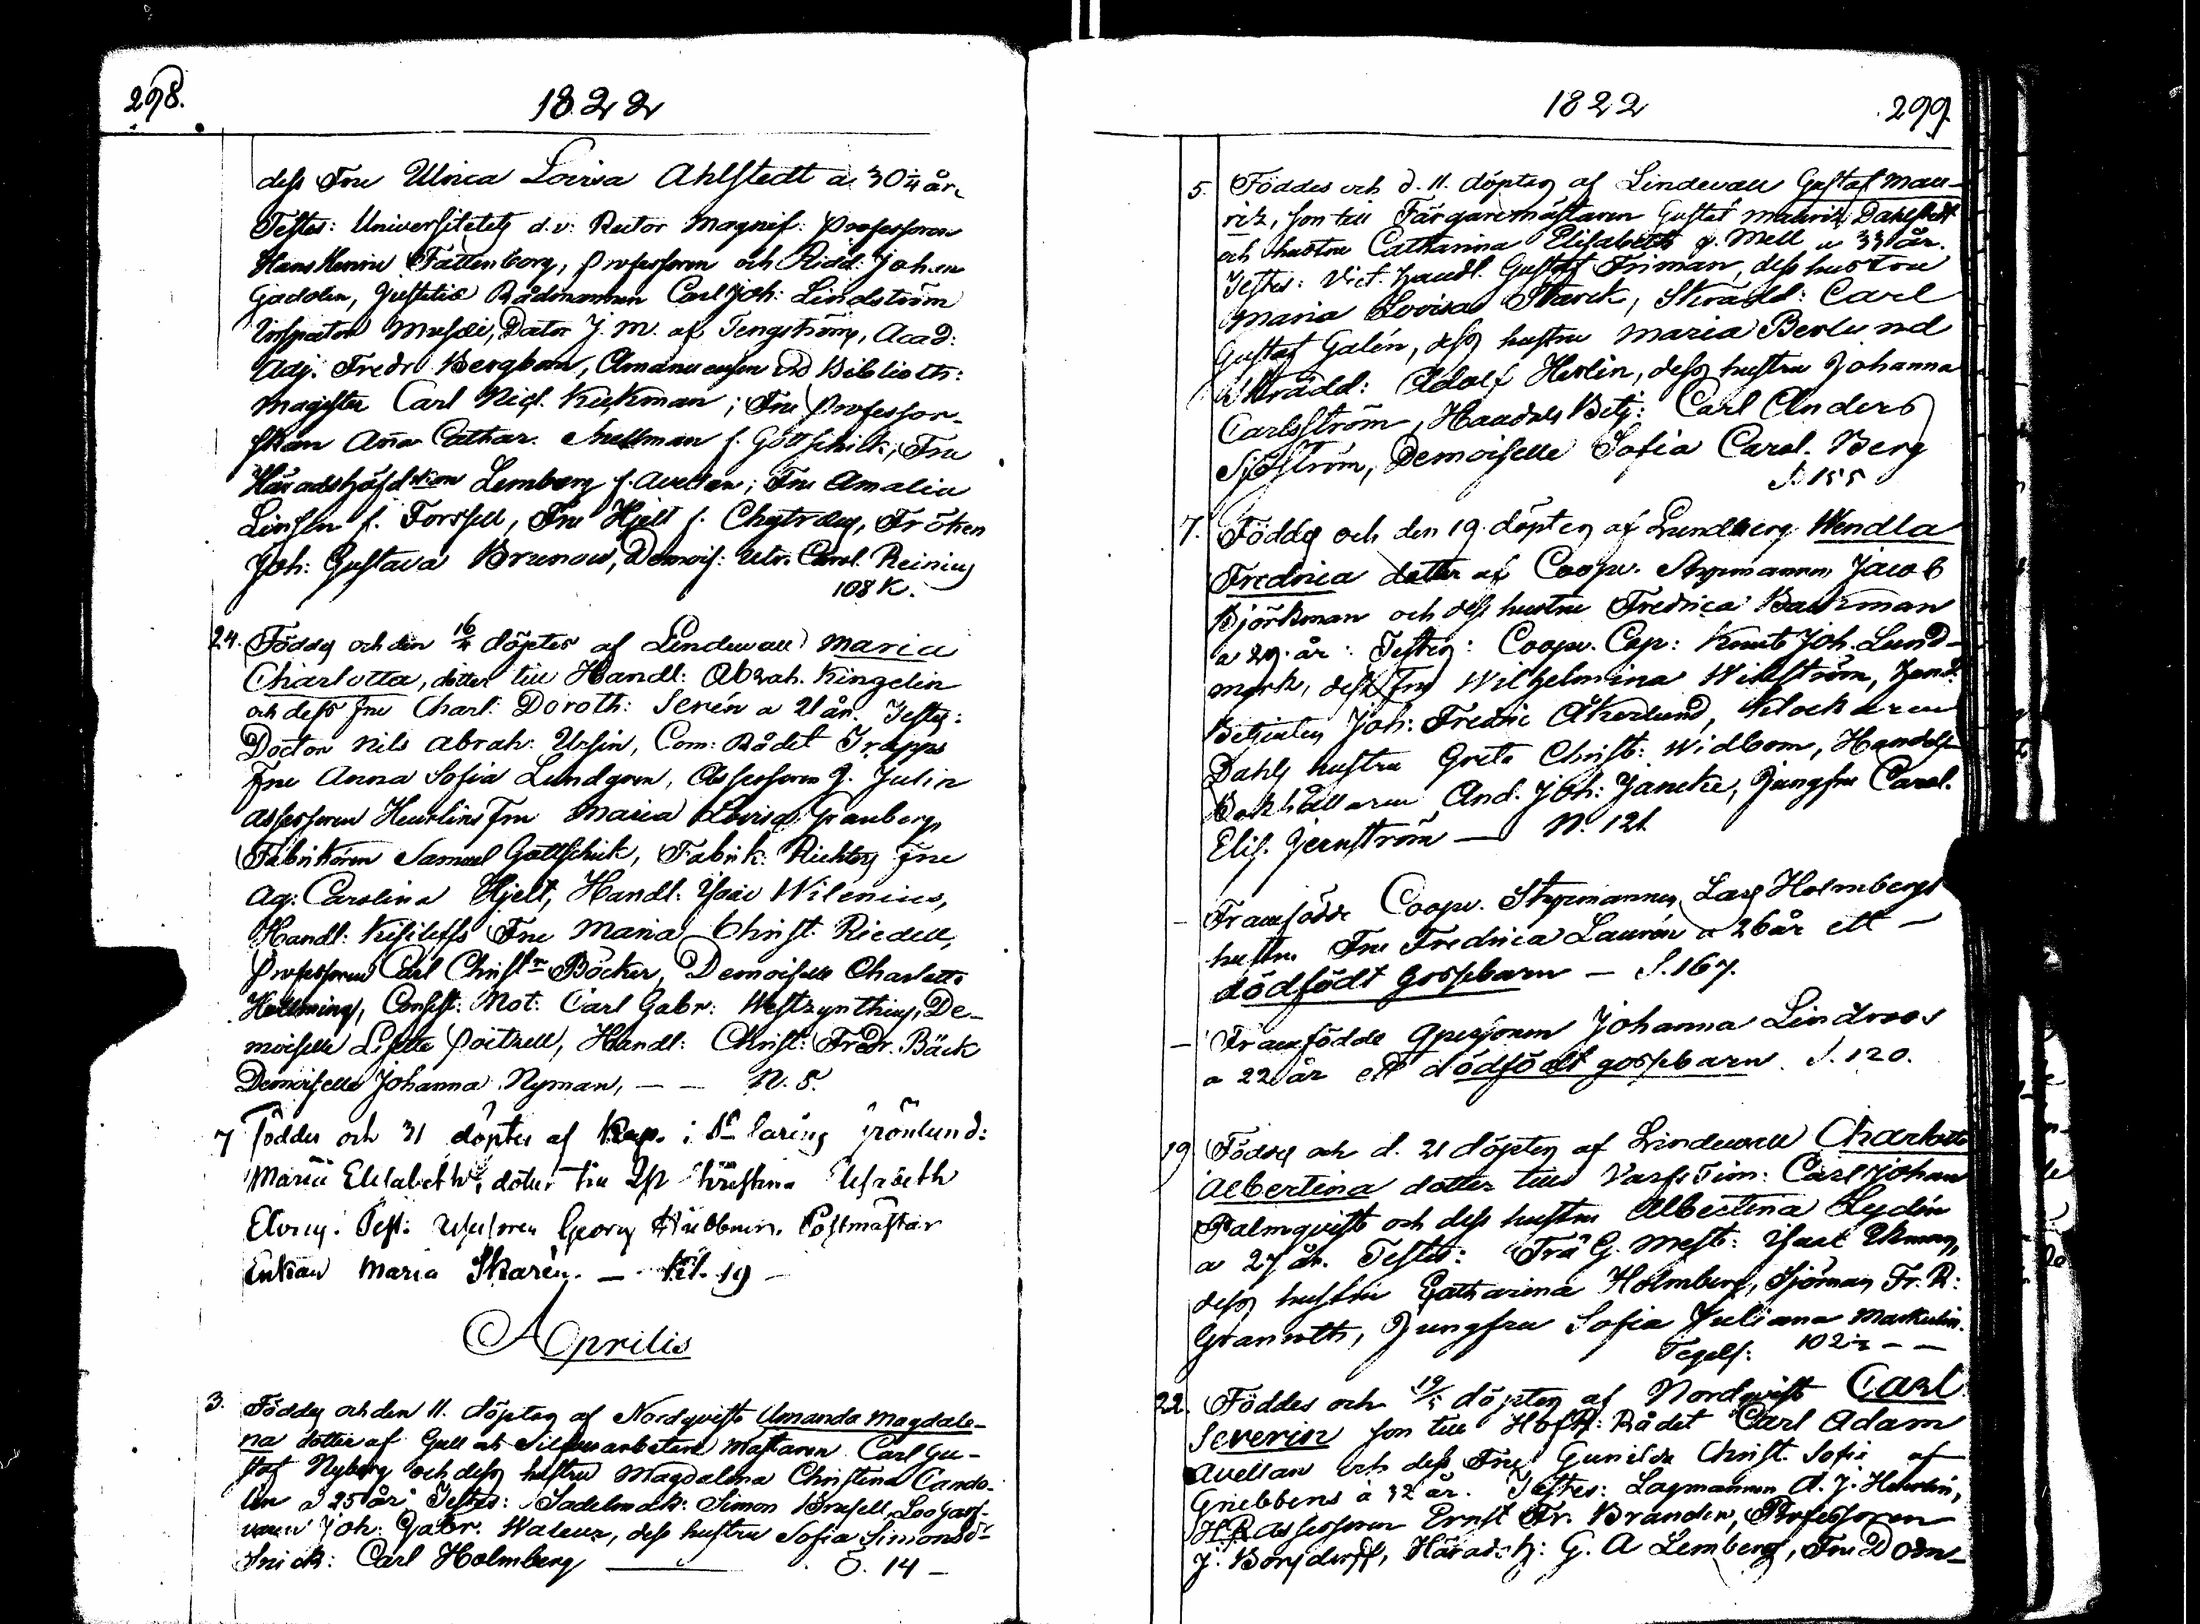 298.
1822
dess Fru Ulrica Lovisa Ahlstedt a 30¼ år,
Testes: Universitetets d.v. Rector Magnif: Professoren
Hans Henric Fattenborg, Professoren och Ridd: Johan
Gadolin, Justitiæ Rådmannen Carl Joh: Lindström
Inspector Musei, Doctor J. M. af Tengström, Acad:
Adj. Fredr Bergbom, Amanuensen vid Biblioth:
Magister Carl Nicl. Keckman; Fru Professor-
skan Anna Cathar. Snellman f. Gottschalk; Fru
Häradshöfdskan Lemberg f. Avellan; Fru Amalia
Linsén f. Forssell, Fru Hjelt f. Chytræus, Fröken
Joh: Gustava Brunow, Demois: Ulr. Carol. Reinius
108 K.
24. Föddes och den 16/4 döptes af Lindewall Maria
Charlotta, dotter till Handl: Abrah. Kingelin
och dess fru Charl: Doroth: Serén a 21 år. Testes:
Doctor Nils Abrah: Ursin, Com: Rådet Trapps
Fru Anna Sofia Lundgren, Assessoren J. Julin
Assessoren Heurlins Fru Maria Lovisa Granberg
Fabrikören Samuel Gottschalk, Fabrik: Richters Fru
Ag: Carolina Hjelt, Handl: Isac Wilenius,
Handl: Kisileffs Fru Maria Christ. Riedell,
Professoren Carl Christn Böcker, Demoiselle Charlotte
Hellming, Consist: Not: Carl Gabr: Westzynthius, De-
moiselle Lisette Poitzell, Handl: Christ: Fredr. Bäck
Demoiselle Johanna Nyman, — — N. 5.
7 Föddes och 31 döptes af Kap. i Grönlund:
Maria Elisabeth, dotter till Christina Elisabeth
Test: Georg Postmästar
Enkan Maria Skarén. — Kl. 19 —
Aprilis
3. Föddes och den 11. döptes af Nordqvist Amanda Magdale-
na dotter af Gull och Silfverarbetare Mästaren Carl Gu-
staf Nyberg och dess hustru Magdalena Christina Cande-
lin a 25 år. Testes: Sadelmak: Simon Brusell, Logarf-
varen Joh: Gabr. Waleur, dess hustru Sofia Simonsd:
Snick: Carl Holmberg — Ö. 14 —
1822
299.
5. Föddes och d. 11. döptes af Lindewall Gustaf Mau-
ritz, son till Färgaremästaren Gustaf Mauritz Dahlstedt
och hustru Catharina Elisabeth g. Mell a 33 år.
Testes: Vict. handl. Gustaf Friman, dess hustru
Maria Lovisa Starck, Skrädd: Carl
Gustaf Galén, dess hustru Maria Berlund
Skrädd: Adolf Herlin, dess hustru Johanna
Carlsström, Handels Betj: Carl Anders
Sjöström, Demoiselle Sofia Carol. Berg
S. 155
7. Föddes och den 19. döptes af Lundberg Wendla
Fredrica dotter af Coopv. Styrmannen Jacob
Björkman och dess hustru Fredrica Backman
a 29 år. Testes: Coopv. Cap: Knut Joh. Lund-
mark, dess fru Wilhelmina Wikström, Hand.
Betjenten Joh: Fredric Åkerlund, Klockaren
Dahls hustru Greta Christ: Widbom, Handels
Bokhållaren And. Joh: Jancke, Jungfru Carol.
Elis. Jernström — N. 121
— Framfödde Coopv. Styrmannen Lars Holmbergs
hustru Fru Fredrica Laurén a 26 år ett —
dödfödt gossebarn — S. 167.
— Framfödde Qpersonen Johanna Lindroos
a 22 år ett dödfödt gossebarn. S. 120.
19 Föddes och d. 21 döptes af Lindewall Charlotta
Albertina dotter till Varfs Tim: Carl Johan
Palmqvist och dess hustru Albertina Lydén
a 27 år. Testes: Trä G. Mest: Isac Ekman,
dess hustru Catharina Holmberg, Sjöman Fr. R:
Granroth, Jungfru Sofia Juliana Markulin.
Tegels: 102½ — —
22. Föddes och 19/5 döptes af Nordqvist Carl
Severin son till HofR: Rådet Carl Adam
Avellan och dess Fru Gunilda Christ. Sofia af
Gnebbens a 32 år. Testes: Lagmannen A. J. Heurlin,
HR Assessoren Ernst Fr. Brander, Professoren
J. Bonsdorff, Häradsh: G. A Lemberg, Fru Dom-